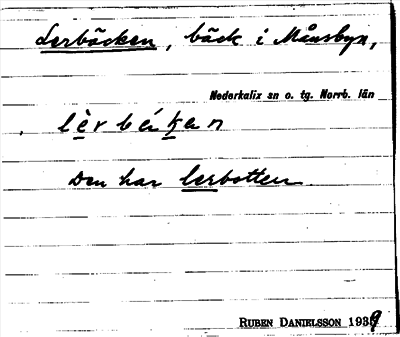 Lerbäcken, bäck i Månsbyn,
Nederkalix sn o. tg. Norrb. län
lèrbékan
Den har lerbotten.
RUBEN DANIELSSON 1939